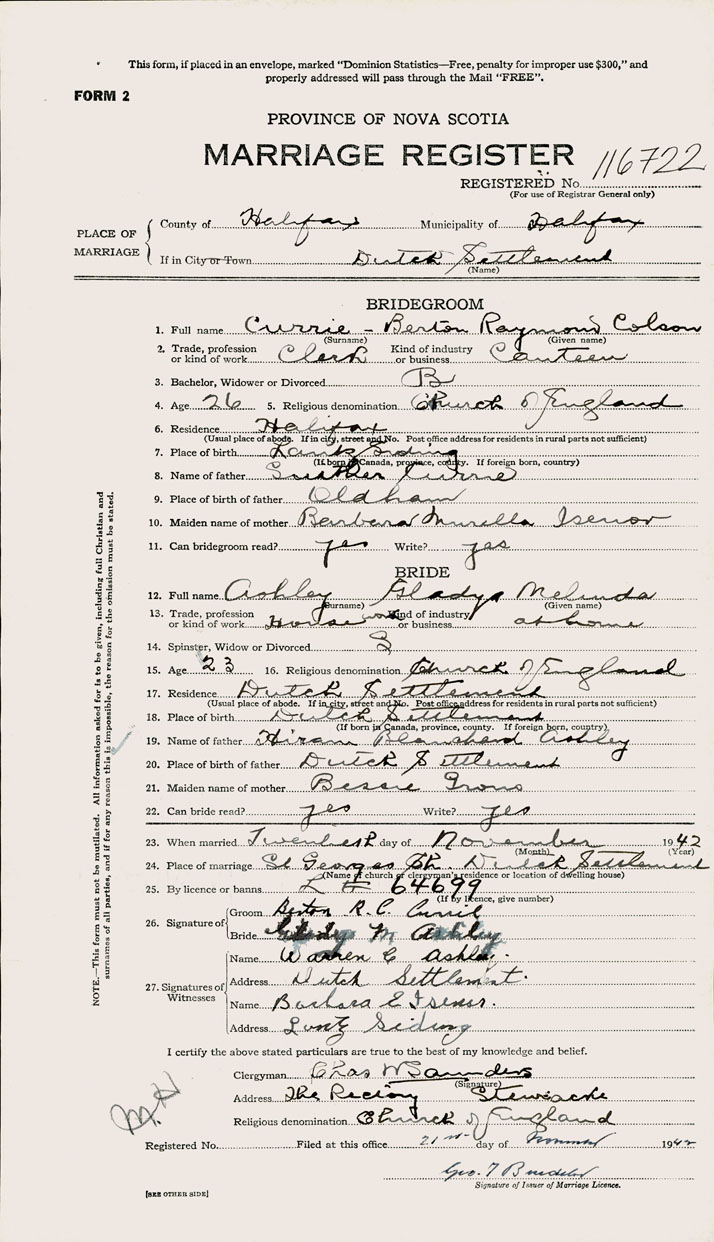 This form, if placed in an envelope, marked “Dominion Statistics—Free, penalty for improper use $300,” and
properly addressed will pass through the Mail “FREE”.
FORM 2
PROVINCE OF NOVA SCOTIA
MARRIAGE REGISTER 116722
REGISTERED No.
(For use of Registrar General only)
PLACE OF MARRIAGE
County of Halifax Municipality of Halifax
If in City or Town Dutch Settlement
(Name)
BRIDEGROOM
1. Full name Currie - Berton Raymond Colson
(Surname) (Given name)
2. Trade, profession or kind of work Clerk Kind of industry or business Canteen
3. Bachelor, Widower or Divorced B
4. Age 26 5. Religious denomination Church of England
6. Residence Halifax
(Usual place of abode. If in city, street and No. Post office address for residents in rural parts not sufficient)
7. Place of birth Lantz Siding
(If born in Canada, province, county. If foreign born, country)
8. Name of father Currie
9. Place of birth of father Oldham
10. Maiden name of mother Barbara Isenor
11. Can bridegroom read? yes Write? yes
BRIDE
12. Full name Ashley Gladys Melinda
(Surname) (Given name)
13. Trade, profession or kind of work Housework Kind of industry or business at home
14. Spinster, Widow or Divorced S
15. Age 23 16. Religious denomination Church of England
17. Residence Dutch Settlement
(Usual place of abode. If in city, street and No. Post office address for residents in rural parts not sufficient)
18. Place of birth Dutch Settlement
(If born in Canada, province, county. If foreign born, country)
19. Name of father Hiram Blanchard Ashley
20. Place of birth of father Dutch Settlement
21. Maiden name of mother Bessie Grono
22. Can bride read? yes Write? yes
23. When married Twentieth day of November 1942
(Month) (Year)
24. Place of marriage St Georges Ch. Dutch Settlement
(Name of church or clergyman's residence or location of dwelling house)
25. By licence or banns L # 64699
(If by licence, give number)
26. Signature of
Groom Berton R. C. Currie
Bride Gladys M Ashley
27. Signatures of Witnesses
Name Warren C Ashley.
Address Dutch Settlement.
Name Barbara E Isenor.
Address Lantz Siding
I certify the above stated particulars are true to the best of my knowledge and belief.
Clergyman Chas W Saunders
(Signature)
Address The Rectory Stewiacke
Religious denomination Church of England
Registered No. Filed at this office 21st day of November 1942
Geo. T
Signature of Issuer of Marriage Licence.
[SEE OTHER SIDE]
NOTE.—This form must not be mutilated. All information asked for is to be given, including full Christian and
surnames of all parties, and if for any reason this is impossible, the reason for the omission must be stated.